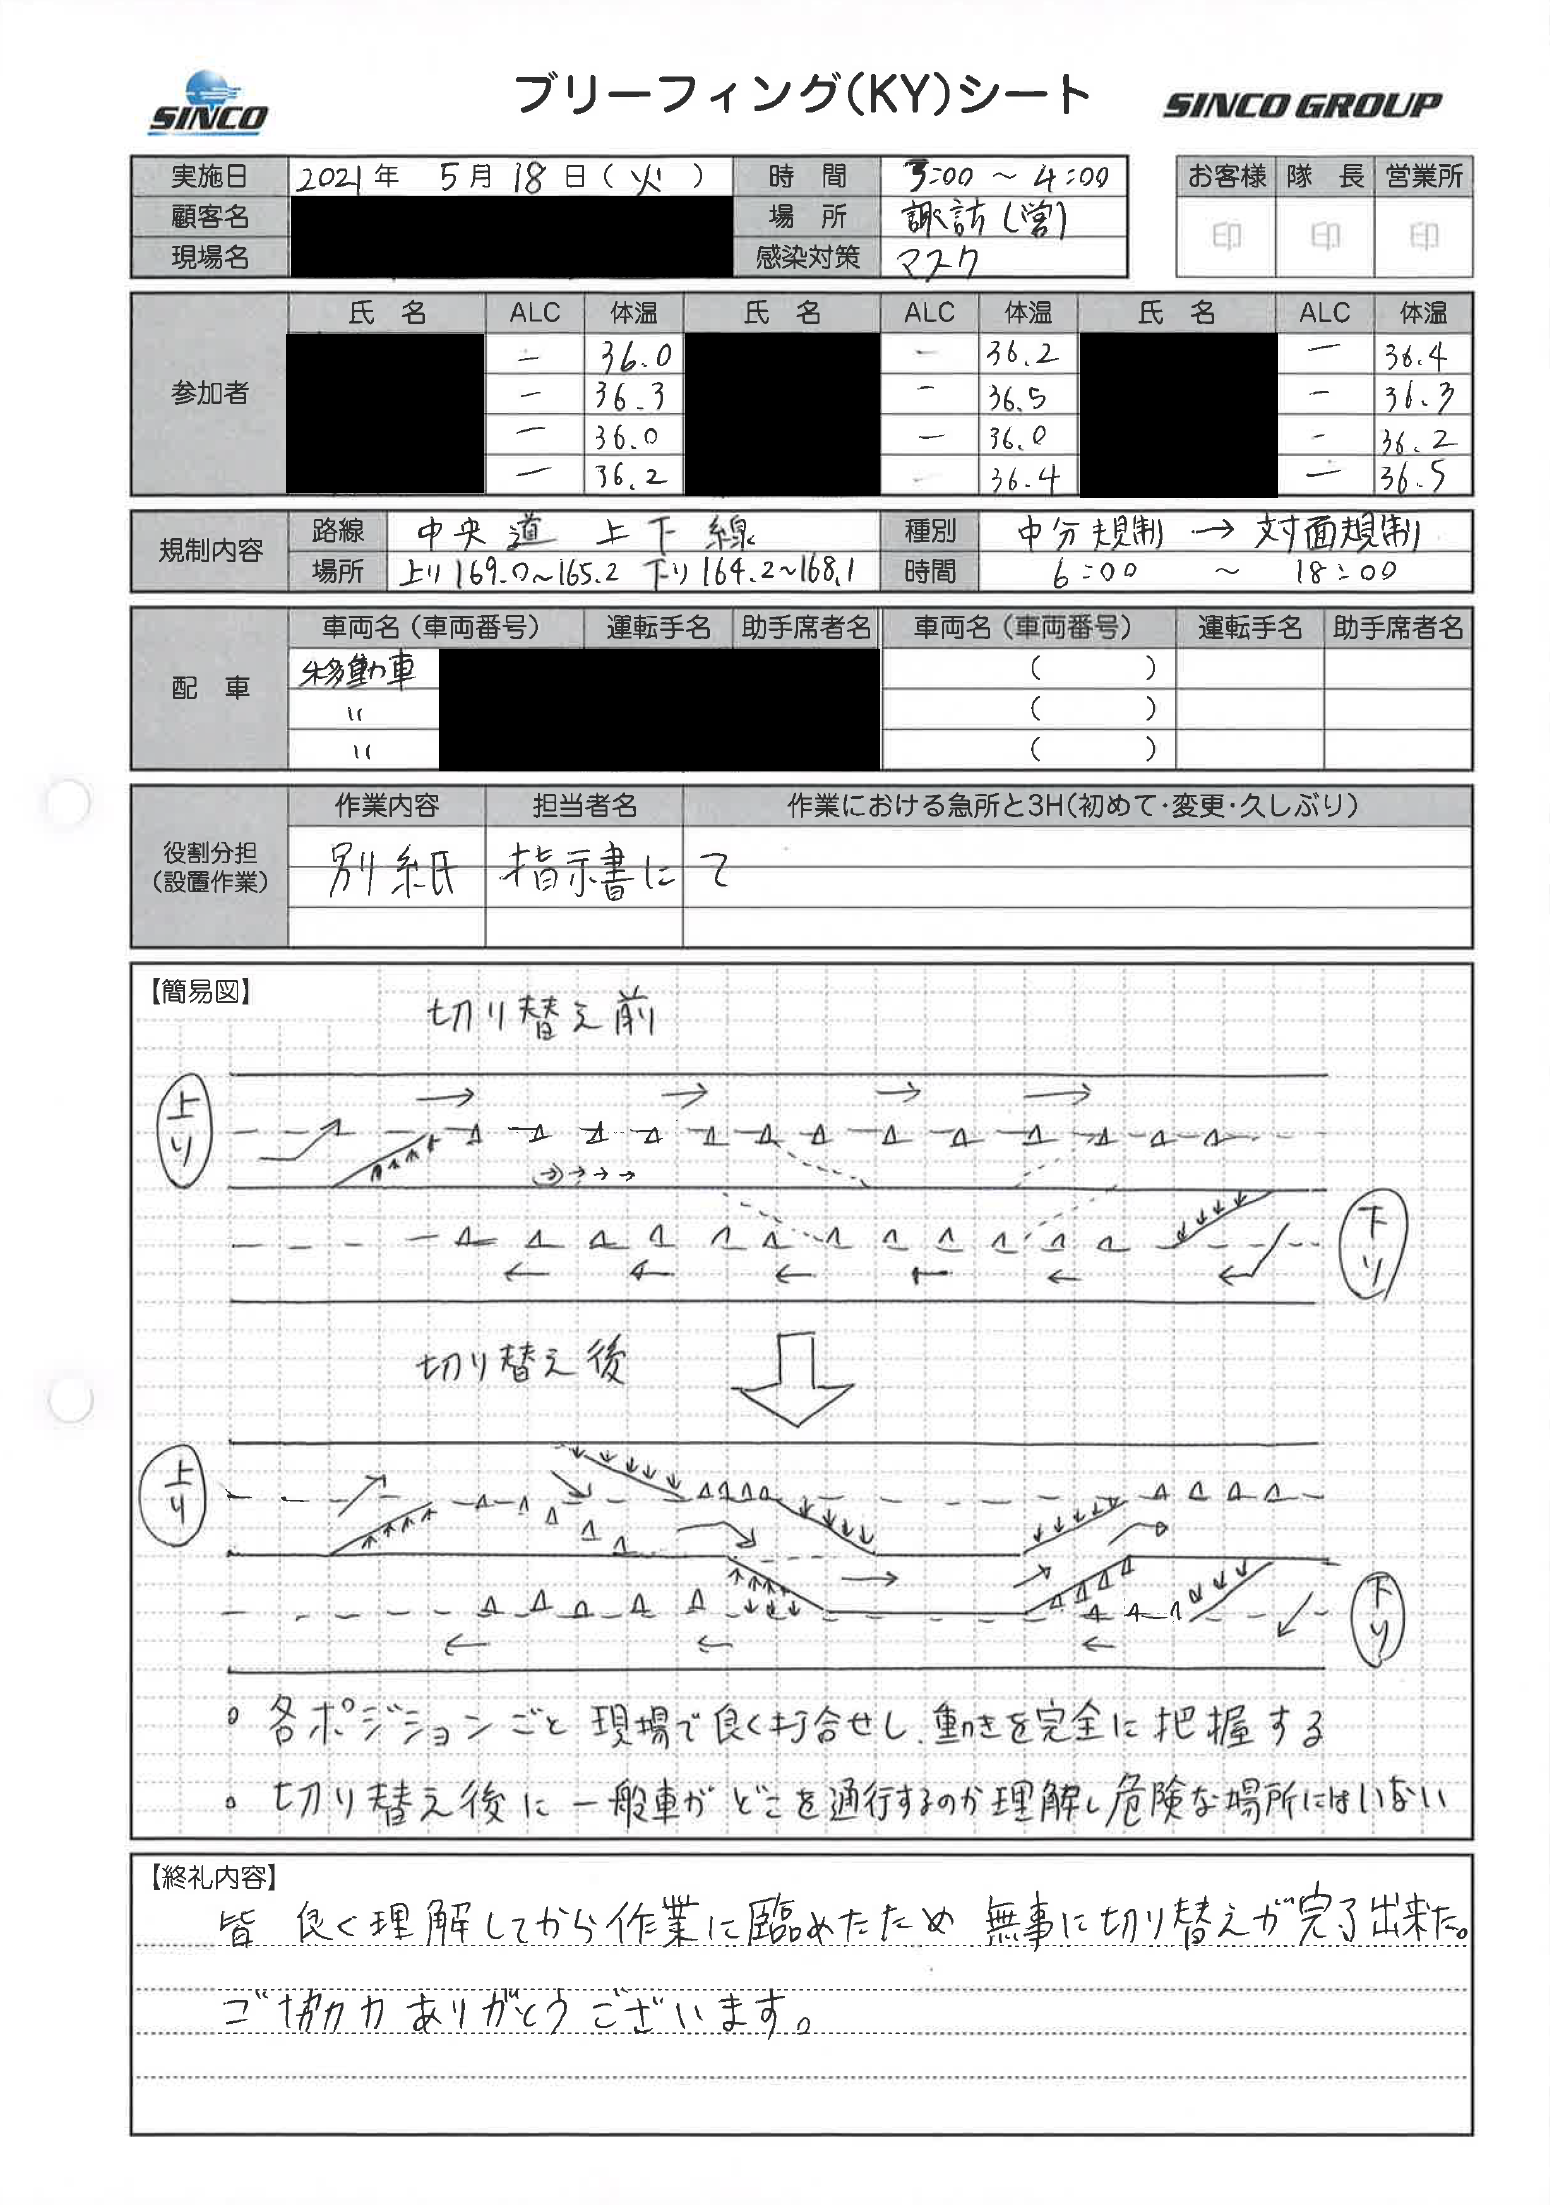 SINCO
ブリーフィング(KY)シート
SINCO GROUP
実施日 2021年 5月 18日(火) 時 間 3:00 ～ 4:00
お客様 隊 長 営業所
顧客名 場 所 諏訪(営)
印 印 印
現場名 感染対策 マスク
参加者
氏 名 ALC 体温 氏 名 ALC 体温 氏 名 ALC 体温
― 36.0 ― 36.2 ― 36.4
― 36.3 ― 36.5 ― 36.3
― 36.0 ― 36.0 ― 36.2
― 36.2 ― 36.4 ― 36.5
規制内容
路線 中央道 上下線 種別 中分規制 → 対面規制
場所 上り169.0～165.2 下り164.2～168.1 時間 6:00 ～ 18:00
配 車
車両名(車両番号) 運転手名 助手席者名 車両名(車両番号) 運転手名 助手席者名
移動車 ( )
〃 ( )
〃 ( )
役割分担
(設置作業)
作業内容 担当者名 作業における急所と3H(初めて・変更・久しぶり)
別紙 指示書にて
【簡易図】
切り替え前
上り
下り
切り替え後
上り
下り
○ 各ポジションごと現場で良く打合せし、動きを完全に把握する
○ 切り替え後に一般車がどこを通行するのか理解し危険な場所にはいない
【終礼内容】
皆 良く理解してから作業に臨めたため 無事に切り替えが完了出来た。
ご協力ありがとうございます。